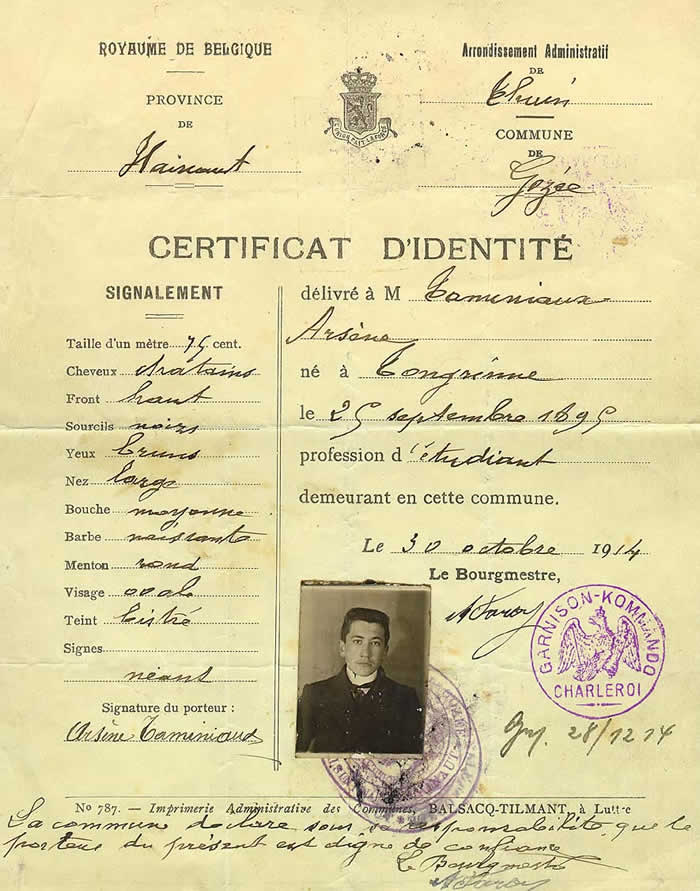 ROYAUME DE BELGIQUE
PROVINCE
DE
Hainaut
L'UNION FAIT LA FORCE
Arrondissement Administratif
DE
Thuin
COMMUNE
DE
Gozée
CERTIFICAT D'IDENTITÉ
SIGNALEMENT
Taille d'un mètre 75 cent.
Cheveux chatains
Front haut
Sourcils noirs
Yeux bruns
Nez large
Bouche moyenne
Barbe naissante
Menton rond
Visage ovale
Teint bistré
Signes
néant
Signature du porteur :
Arsène Taminiaux
délivré à M Taminiaux
Arsène
né à Tongrinne
le 25 septembre 1895
profession d'étudiant
demeurant en cette commune.
Le 30 octobre 1914
Le Bourgmestre,
GARNISON-KOMMANDO
CHARLEROI
28/12 14
No 787. — Imprimerie Administrative des Communes, BALSACQ-TILMANT, à Luttre
La commune déclare sous sa responsabilité que le
porteur du présent est digne de confiance
Le Bourgmestre